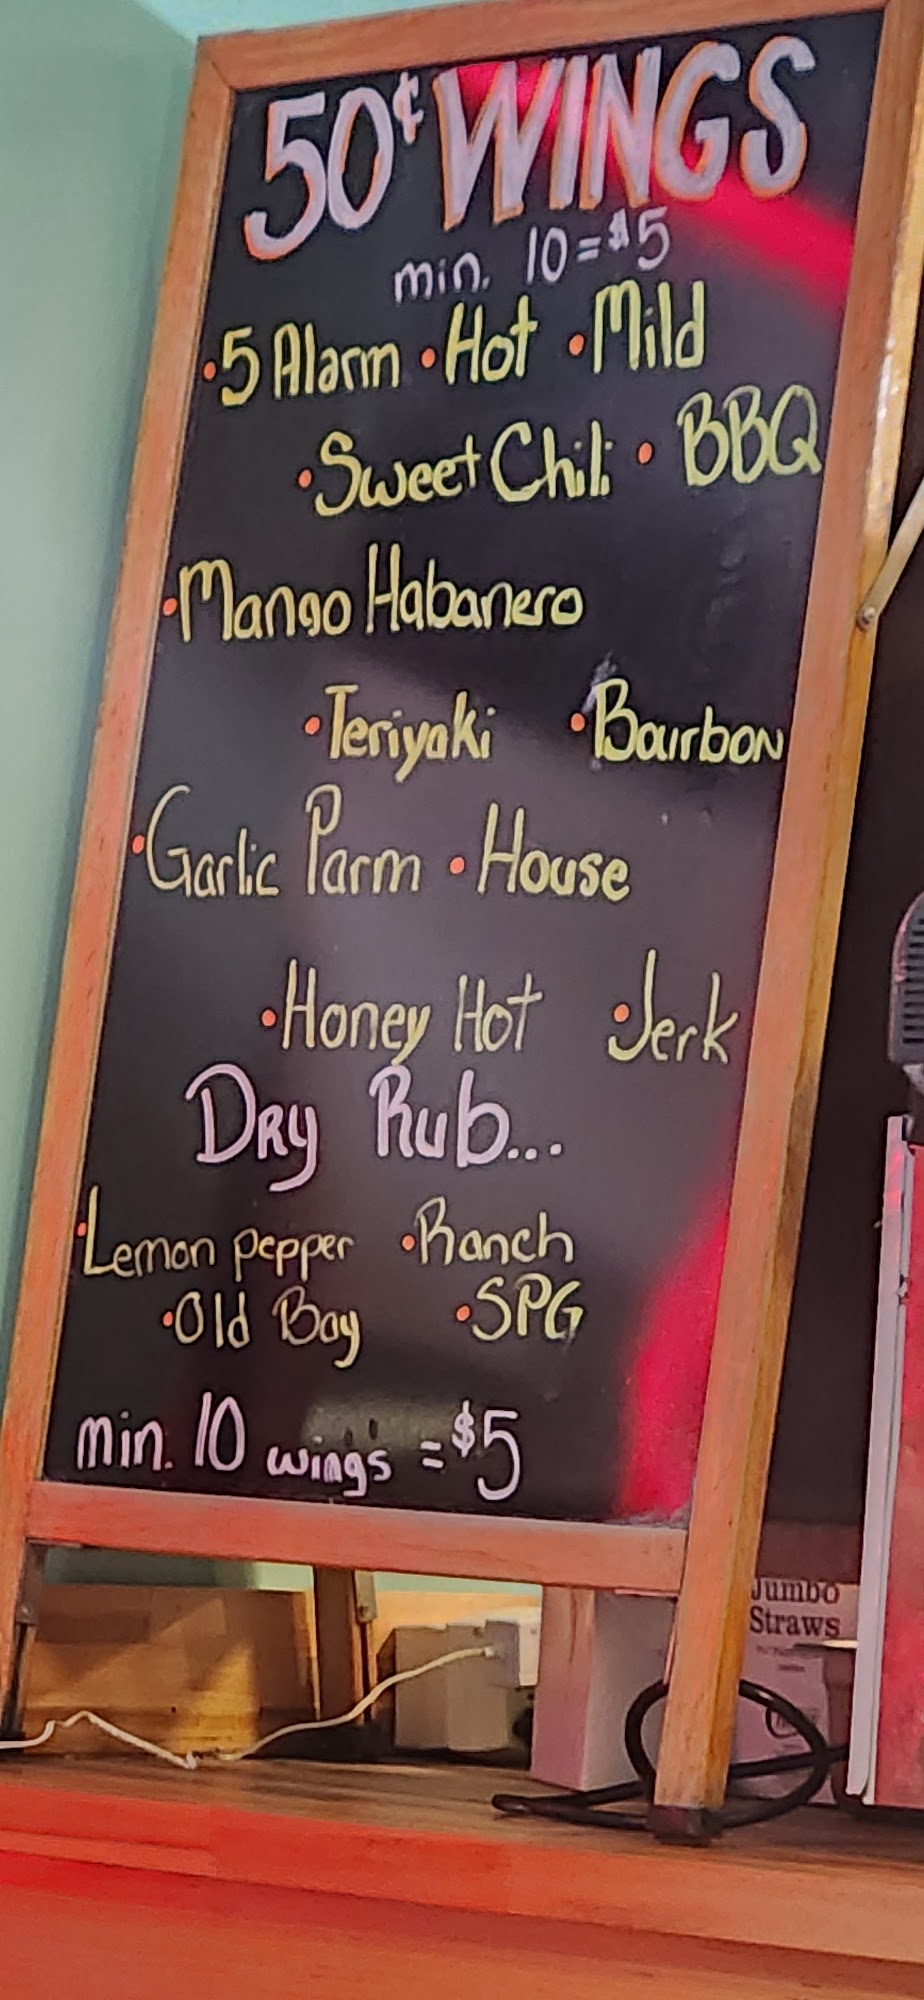 50¢ WINGS
min. 10 = $5
•5 Alarm •Hot •Mild
•Sweet Chili • BBQ
•Mango Habanero
•Teriyaki •Bourbon
•Garlic Parm •House
•Honey Hot •Jerk
Dry Rub...
•Lemon pepper •Ranch
•Old Bay •SPG
min. 10 wings = $5
Jumbo
Straws